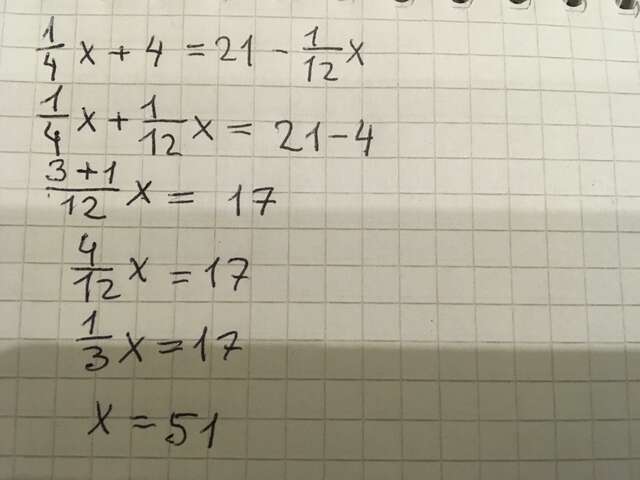 1/4 x + 4 = 21 - 1/12 x
1/4 x + 1/12 x = 21 - 4
3+1/12 x = 17
4/12 x = 17
1/3 x = 17
x = 51